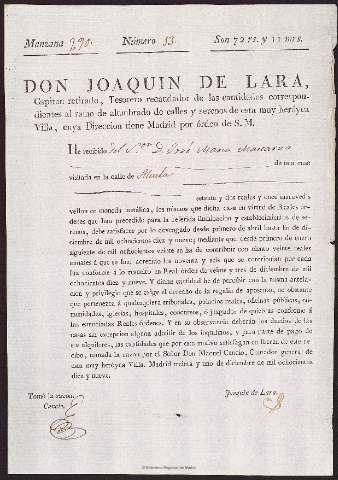 Manzana 290. Número 13. Son 72 rs. y 11 mrs.
DON JOAQUIN DE LARA,
Capitan retirado, Tesorero recaudador de las cantidades correspon-
dientes al ramo de alumbrado de calles y serenos de esta muy heróyca
Villa, cuya Direccion tiene Madrid por órden de S. M.
He recibido del Sr. D. José María
de una casa
visitada en la calle de Alcala
setenta y dos reales y once maravedís
vellon en moneda metálica, los mismos que dicha casa en virtud de Reales ór-
denes que han precedido para la referida iluminacion y establecimiento de se-
renos, debe satisfacer por lo devengado desde primero de abril hasta fin de
diciembre de mil ochocientos diez y nueve; mediante que desde primero de enero
siguiente de mil ochocientos veinte es la de contribuir con ciento veinte reales
anuales á que se han acrecido los noventa y seis que se contribuian por cada
luz conforme á lo resuelto en Real órden de veinte y tres de diciembre de mil
ochocientos diez y nueve. Y dicha cantidad ha de percibir con la misma antela-
cion y privilegio que se exige el derecho de la regalía de aposento, no obstante
que pertenezca á qualesquiera tribunales, palacios reales, oficinas públicas, co-
munidades, iglesias, hospitales, concursos, ó juzgados de quiebras conforme á
las enunciadas Reales órdenes. Y en su observancia deberán los dueños de las
casas sin excepcion alguna admitir de los inquilinos, y para parte de pago de
sus alquileres, las cantidades que por este motivo satisfagan en fuerza de este re-
cibo, tomada la razon por el Señor Don Manuel Cancio, Contador general de
esta muy heróyca Villa. Madrid treinta y uno de diciembre de mil ochocientos
diez y nueve.
Tomé la razon.
Cancio.
Joaquin de Lara.
© Biblioteca Regional de Madrid